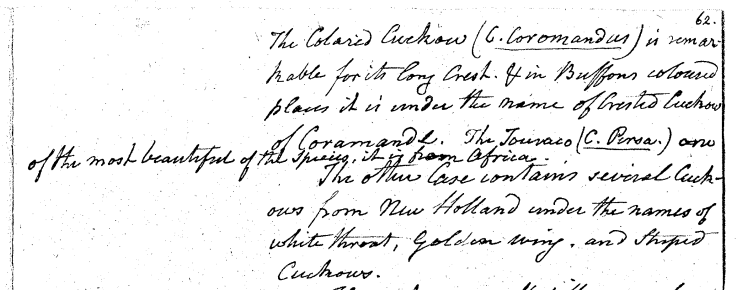 62.
The Colared Cuckow (C. Coromandus) is remar-
kable for its long Crest. & in Buffons coloured
plates it is under the name of Crested Cuckow
of Coramande. The Touraco (C. Persa.) one
of the most beautiful of the species, it is from Africa.
The other Case contains several Cuck-
ows from New Holland under the names of
white throat, Golden wing, and Striped
Cuckows.